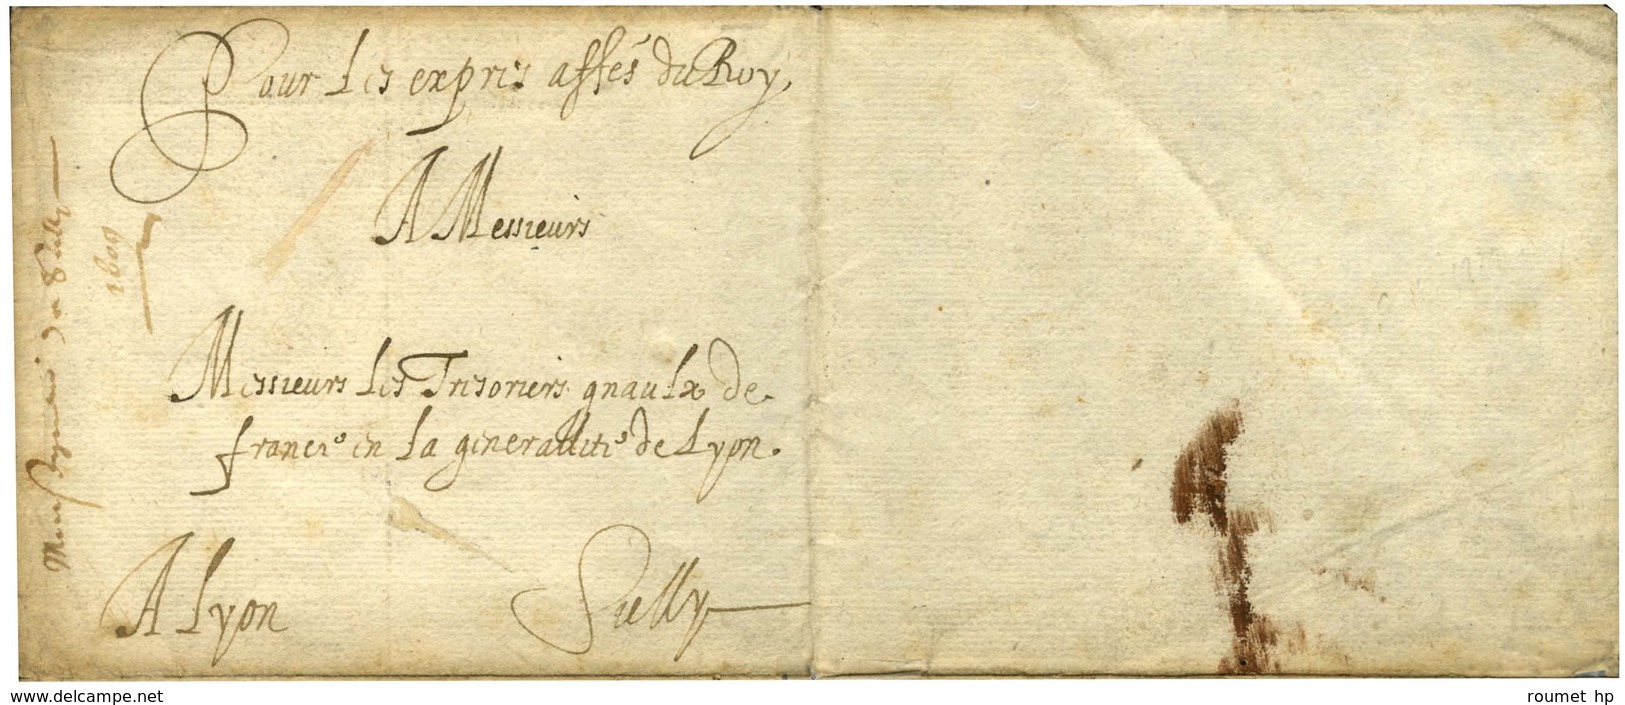 Pour les exprès affes du Roy,
A Messieurs
Messieurs les Tresoriers gnaulx de
france en la generallité de Lyon.
A Lyon
Sully
Monseigneur de Sully
1609
www.delcampe.net
roumet hp